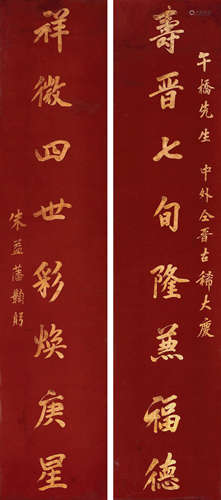 午橋先生 中外仝晋古稀大慶
壽晋七旬隆兼福德
祥徵四世彩煥庚星
朱益藩鞠躬